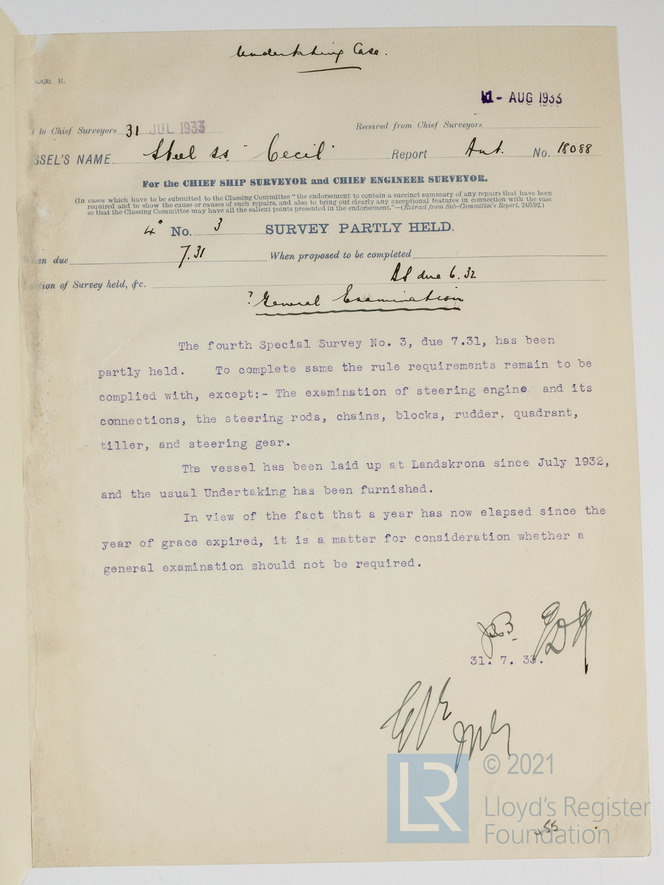 Undertaking Case.
11 - AUG 1933
to Chief Surveyors 31 JUL 1933 Received from Chief Surveyors
SSEL'S NAME Steel ss "Cecil" Report Ant. No. 18088
For the CHIEF SHIP SURVEYOR and CHIEF ENGINEER SURVEYOR.
(In cases which have to be submitted to the Classing Committee "the endorsement to contain a succinct summary of any repairs that have been
required and to show the cause or causes of such repairs, and also to bring out clearly any exceptional features in connection with the case
so that the Classing Committee may have all the salient points presented in the endorsement."—(Extract from Sub-Committee's Report, 24/5/92.)
4th No. 3 SURVEY PARTLY HELD.
en due 7.31 When proposed to be completed
tion of Survey held, &c. SS due 6.32
? General Examination
The fourth Special Survey No. 3, due 7.31, has been
partly held. To complete same the rule requirements remain to be
complied with, except:- The examination of steering engine and its
connections, the steering rods, chains, blocks, rudder, quadrant,
tiller, and steering gear.
The vessel has been laid up at Landskrona since July 1932,
and the usual Undertaking has been furnished.
In view of the fact that a year has now elapsed since the
year of grace expired, it is a matter for consideration whether a
general examination should not be required.
31. 7. 33.
LR © 2021
Lloyd's Register
Foundation
55